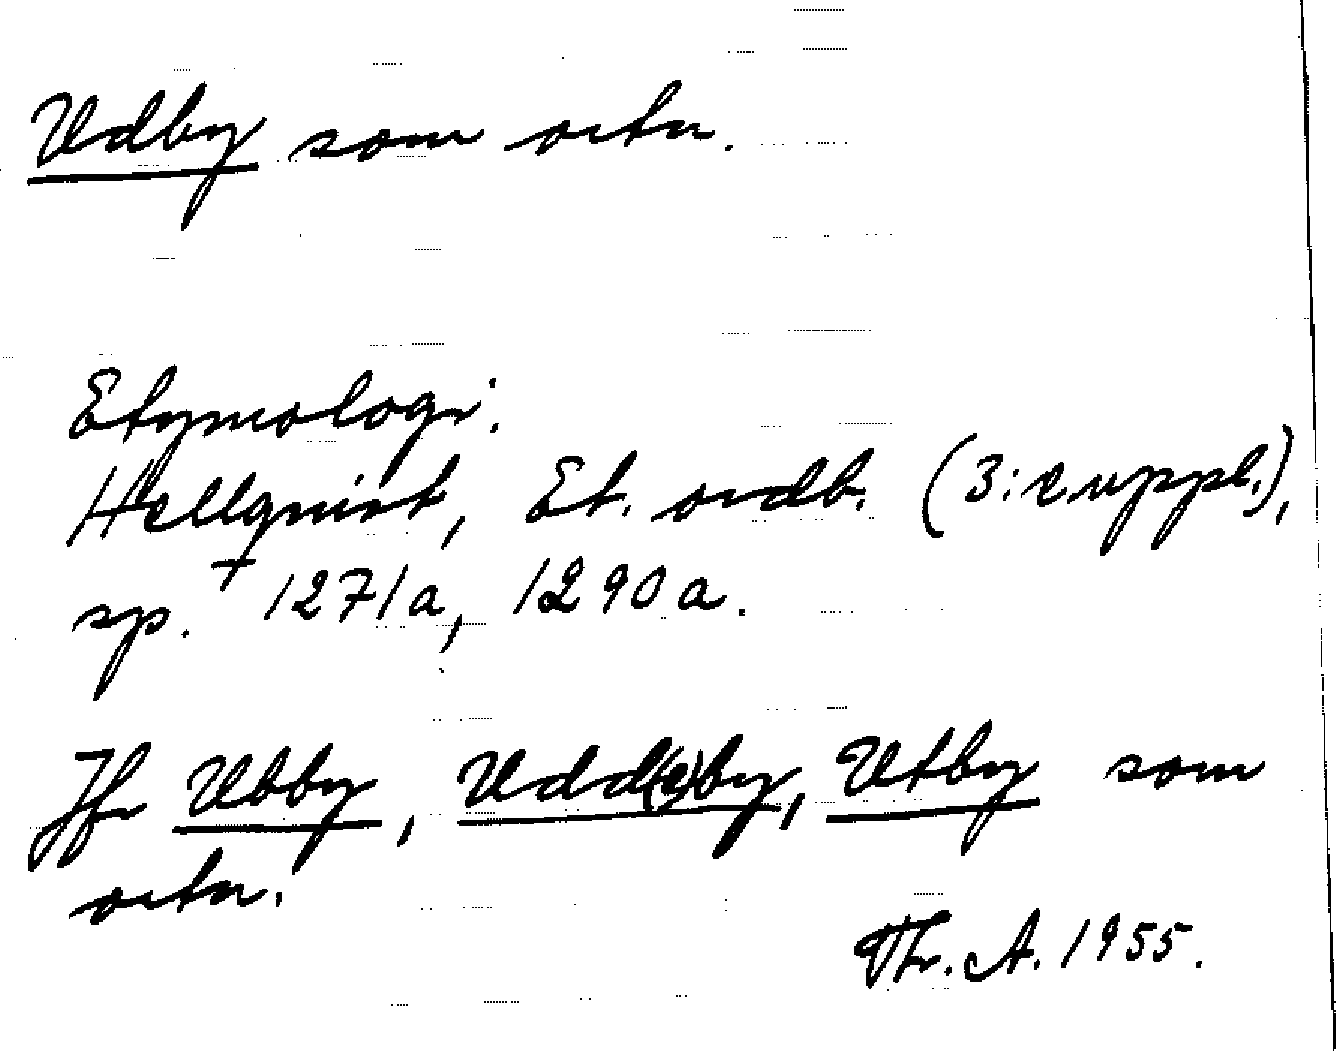 Udby som ortn.
Etymologi.
Hellquist, Et. ordb. (3:e uppl.),
sp. 1271a, 1290a.
Jfr Ubby, Udd(e)by, Utby som
ortn.
Th. A. 1955.